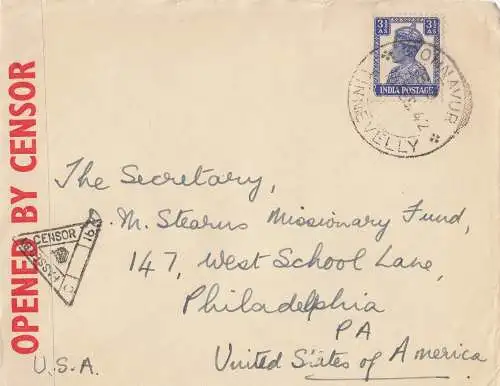 OPENED BY CENSOR
3½ AS 3½ AS
INDIA POSTAGE
TINNEVELLY
The Secretary,
M. Stearns Missionary Fund,
147, West School Lane,
Philadelphia
PA
United States of America
U.S.A.
CENSOR
PASSED